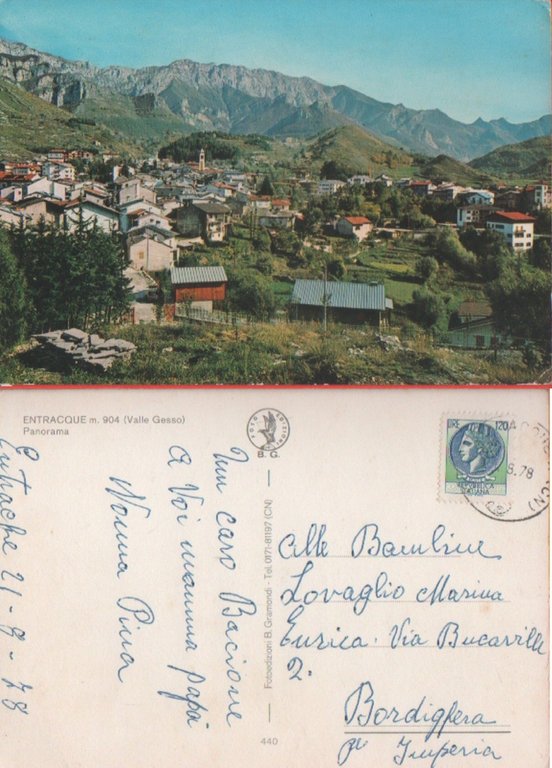 ENTRACQUE m. 904 (Valle Gesso)
Panorama
FOTO EDIZIONI
B. G.
LIRE 120
REPUBBLICA
ITALIANA
8.78
(CN)
Fotoedizioni B. Gramondi - Tel. 0171-81197 (CN)
440
Entrache 21-8-78
Un caro Bacione
A Voi mamma papà
Nonna Pina
Alle Bambine
Lovaglio Marina
Enrica. Via
2°
Bordighera
Imperia